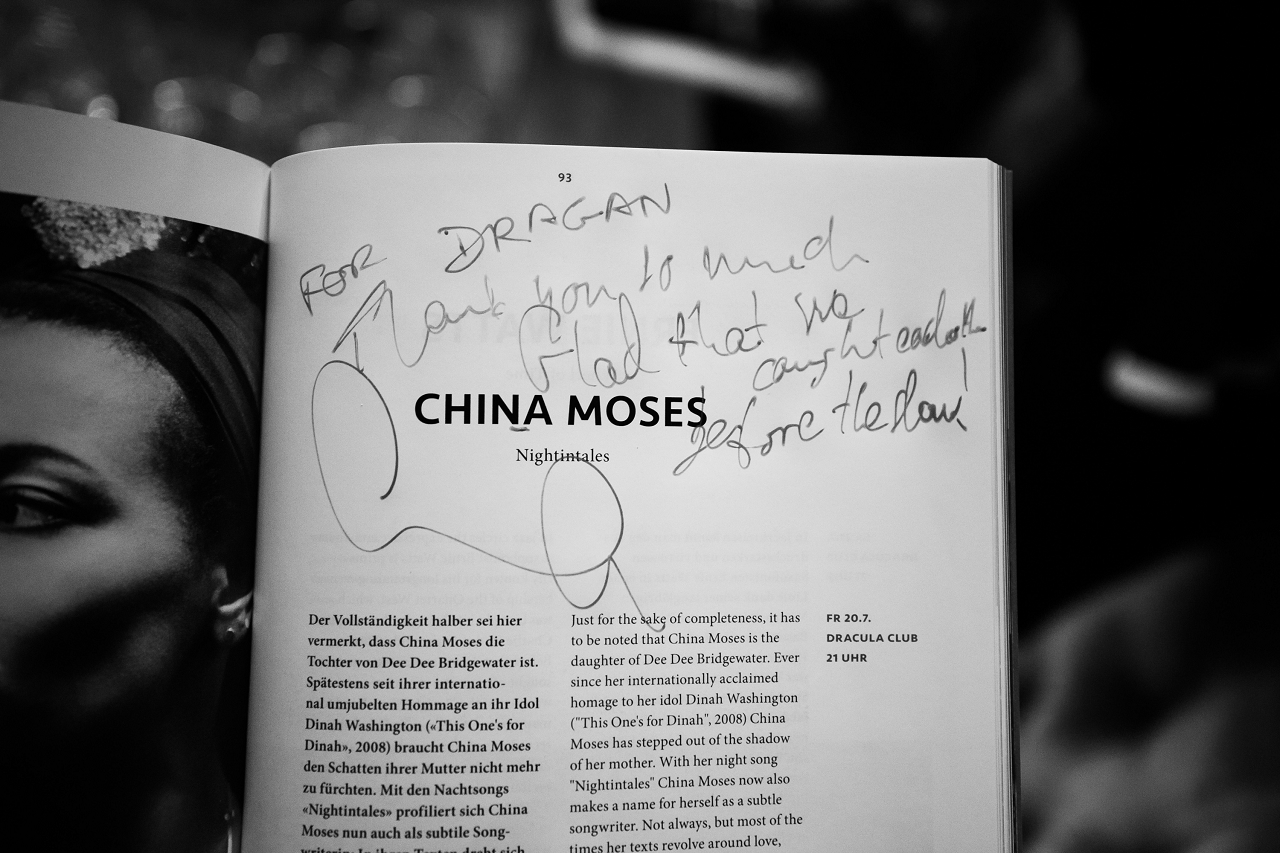 93
FOR DRAGAN
Thank you so much
Glad that we
caught each oth
before the show!
CHINA MOSES
Nightintales
Der Vollständigkeit halber sei hier
vermerkt, dass China Moses die
Tochter von Dee Dee Bridgewater ist.
Spätestens seit ihrer internatio-
nal umjubelten Hommage an ihr Idol
Dinah Washington («This One's for
Dinah», 2008) braucht China Moses
den Schatten ihrer Mutter nicht mehr
zu fürchten. Mit den Nachtsongs
«Nightintales» profiliert sich China
Moses nun auch als subtile Song-
writerin: In ihren Texten dreht sich
Just for the sake of completeness, it has
to be noted that China Moses is the
daughter of Dee Dee Bridgewater. Ever
since her internationally acclaimed
homage to her idol Dinah Washington
("This One's for Dinah", 2008) China
Moses has stepped out of the shadow
of her mother. With her night song
"Nightintales" China Moses now also
makes a name for herself as a subtle
songwriter. Not always, but most of the
times her texts revolve around love,
FR 20.7.
DRACULA CLUB
21 UHR